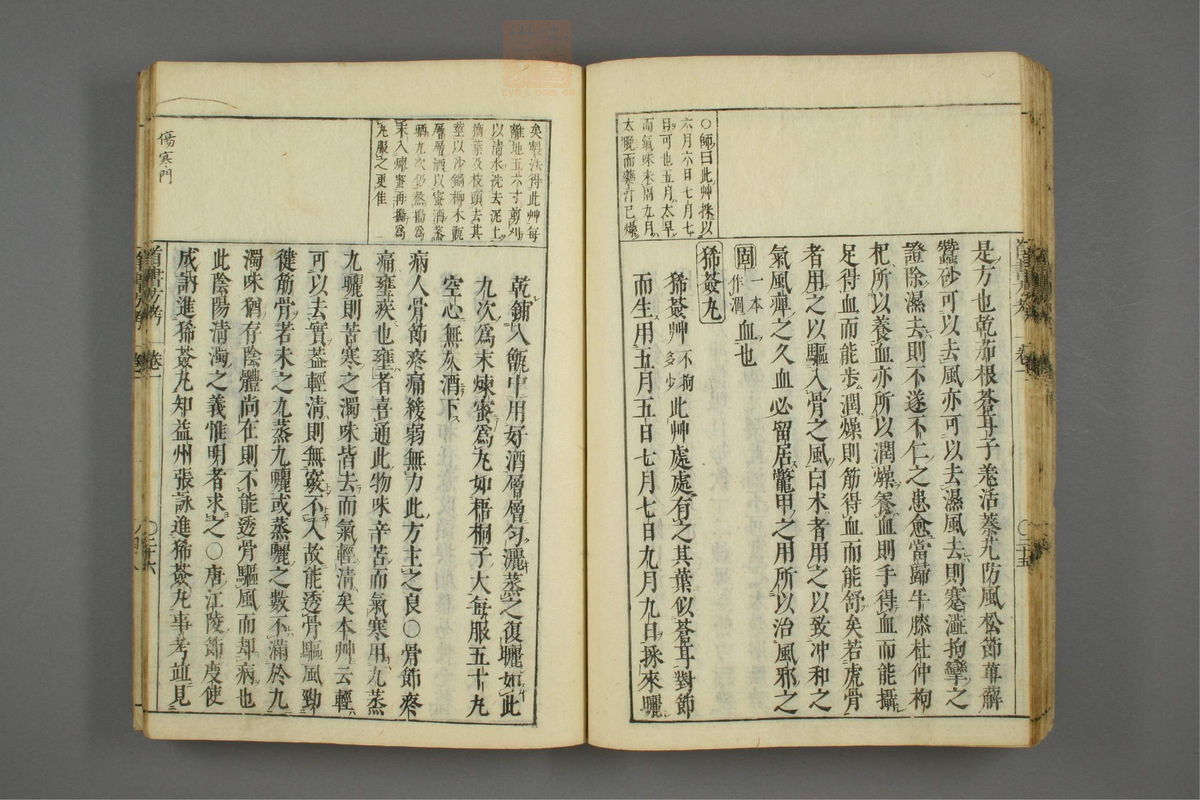 ○師曰此艸採以
六月六日七月七
日可也五月太早
而氣味未閗九月
太晚而藥汁已燥
是方也乾茄根蒼耳子羗活蓁艽防風松節萆薢
蠶砂可以去風亦可以去濕風去則蹇澁拘攣之
證除濕去則不遂不仁之患愈當歸牛膝杜仲枸
杞所以養血亦所以潤燥養血則手得血而能攝
足得血而能步潤燥則筋得血而能舒矣若虎骨
者用之以驅入骨之風白朮者用之以致冲和之
氣風痺之久血必留居鼈甲之用所以治風邪之
固一本作涸血也
豨薟丸
豨薟艸不拘多少此艸處處有之其葉似蒼耳對節
而生用五月五日七月七日九月九日採來曬
卷一
○三十五
矣製法得此艸每
離地五六寸剪刈
以清水洗去泥土
摘葉及枝頭去其
莖以沙鍋柳木甑
層層酒以蜜酒蒸
晒九次仍蒸搗爲
末入煉蜜再搗爲
丸服之更佳
傷寒門
乾鋪入甑中用好酒層層匀灑蒸之復曬如此
九次爲末煉蜜爲丸如梧桐子大每服五十丸
空心無灰酒下
病人骨節疼痛緩弱無力此方主之良○骨節疼
痛壅疾也壅者喜通此物味辛苦而氣寒用九蒸
九曬則苦寒之濁味皆去而氣輕清矣本艸云輕
可以去實葢輕清則無竅不入故能透骨驅風勁
健筋骨若未之九蒸九曬或蒸曬之數不滿於九
濁味猶存陰體尚在則不能透骨驅風而却病也
此陰陽清濁之義惟明者求之○唐江陵節度使
成訥進豨薟丸知益州張詠進豨薟丸事考竝見
卷一
○三十六